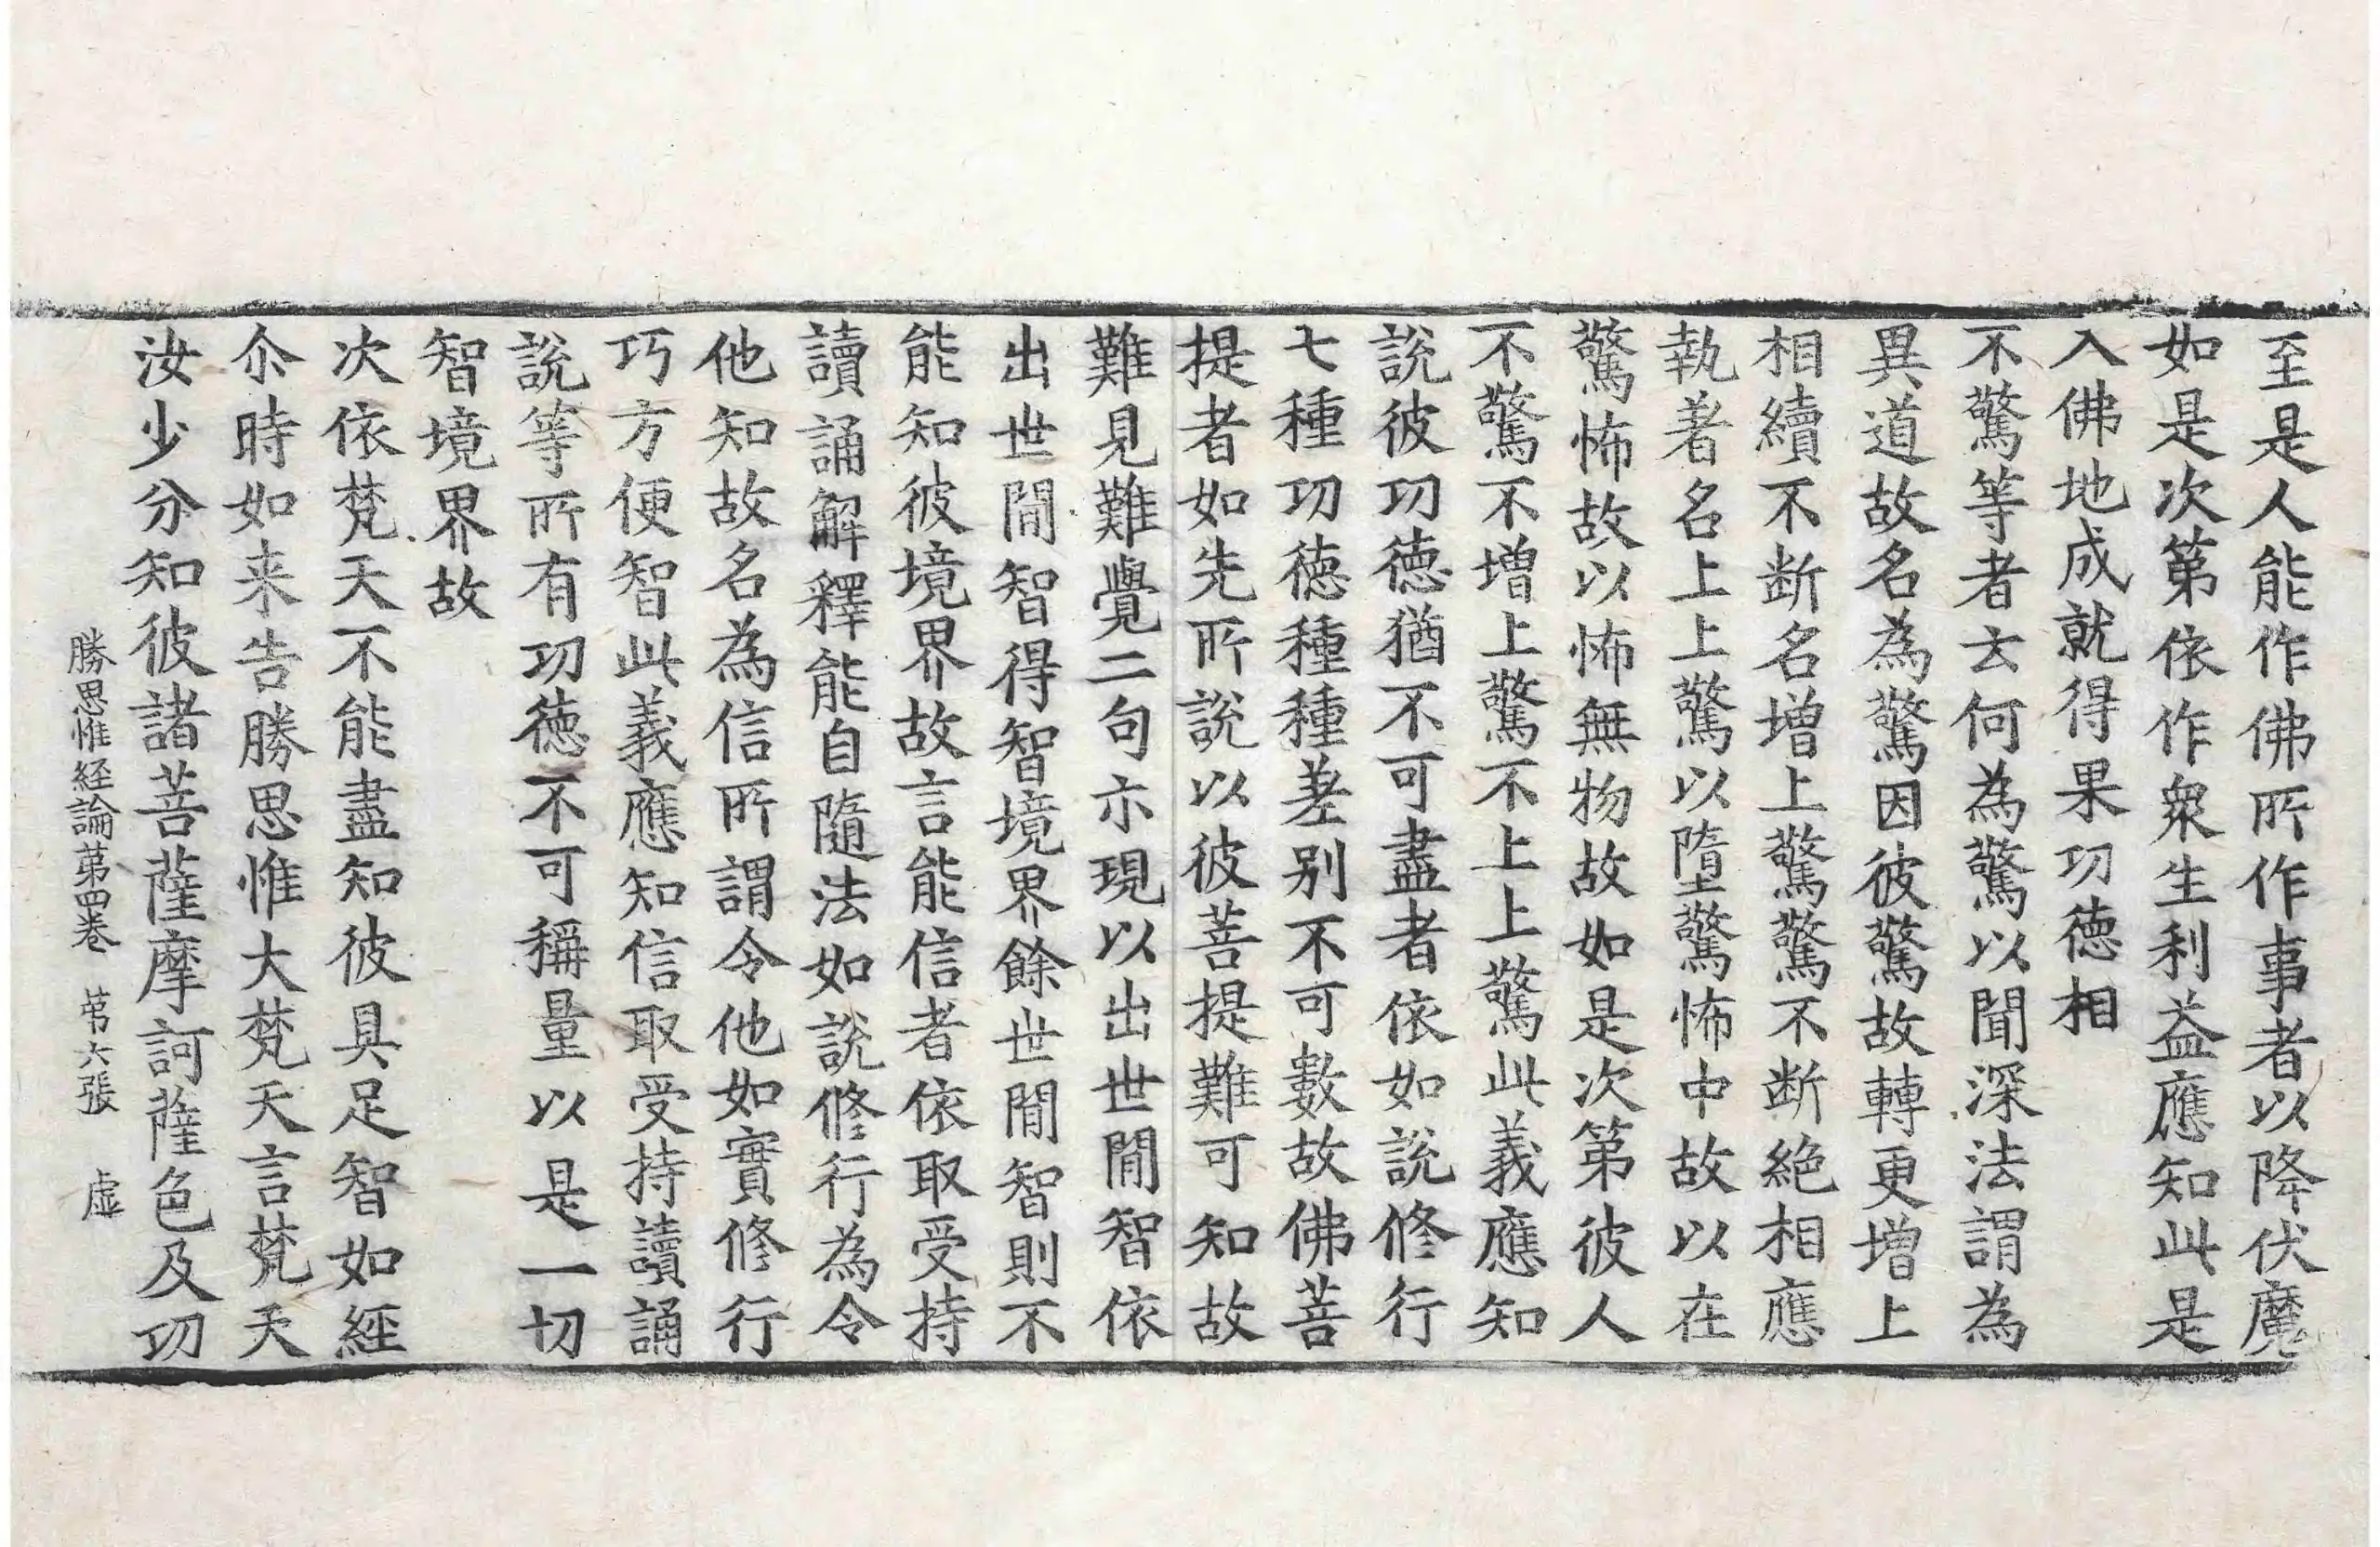 至是人能作佛所作事者以降伏魔
如是次第依作衆生利益應知此是
入佛地成就得果功徳相
不驚等者云何為驚以聞深法謂為
異道故名為驚因彼驚故轉更增上
相續不断名增上驚驚不断絶相應
執著名上上驚以墮驚怖中故以在
驚怖故以怖無物故如是次第彼人
不驚不增上驚不上上驚此義應知
說彼功徳猶不可盡者依如說修行
七種功徳種種差别不可數故佛菩
提者如先所說以彼菩提難可知故
難見難覺二句示現以出世間智依
出世間智得智境界餘世間智則不
能知彼境界故言能信者依取受持
讀誦解釋能自隨法如說修行為令
他知故名為信所謂令他如實修行
巧方便智此義應知信取受持讀誦
說等所有功徳不可稱量以是一切
智境界故
次依梵天不能盡知彼具足智如經
尒時如来告勝思惟大梵天言梵天
汝少分知彼諸菩薩摩訶薩色及功
勝思惟経論苐四卷 苐六張 虛